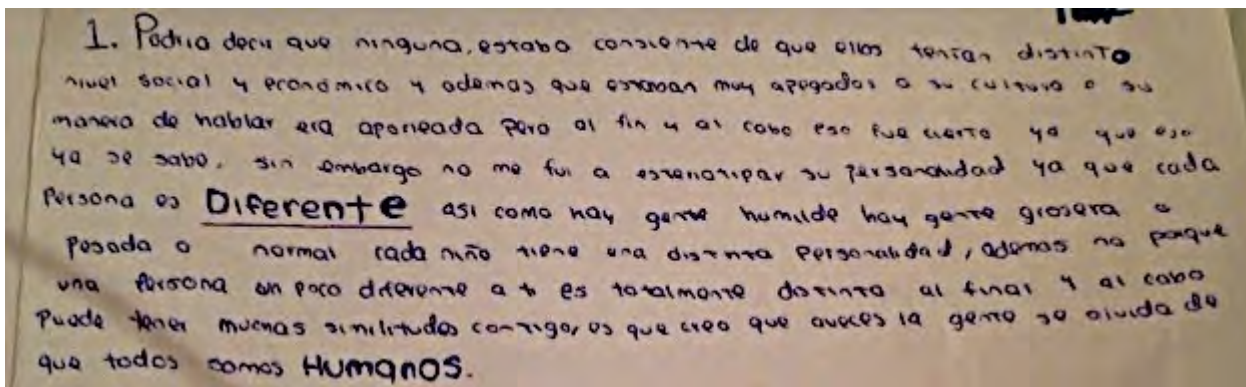 1. Podria decir que ninguna, estaba consiente de que ellos tenian distinto
nivel social y económico y ademas que estaban muy apegados a su cultura o su
manera de hablar era aporreada pero al fin y al cabo eso fue cierto ya que eso
ya se sabe, sin embargo no me fui a estenotipar su personalidad ya que cada
persona es Diferente asi como hay gente humilde hay gente grosera o
pesada o normal cada niño tiene una distinta personalidad, ademas no porque
una persona un poco diferente a ti es totalmente distinta al final y al cabo
puede tener muchas similitudes contigo, es que creo que aveces la gente se olvida de
que todos somos HUMANOS.